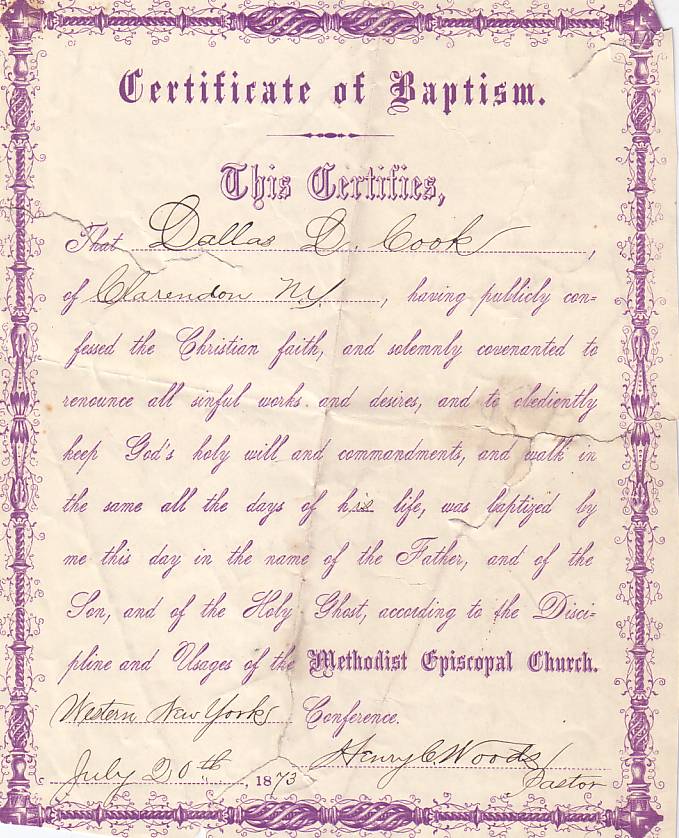 Certificate of Baptism.
This Certifies,
That Dallas D. Cook,
of Clarendon N.Y., having publicly con=
fessed the Christian faith, and solemnly covenanted to
renounce all sinful works and desires, and to obediently
keep God's holy will and commandments, and walk in
the same all the days of his life, was baptized by
me this day in the name of the Father, and of the
Son, and of the Holy Ghost, according to the Disci=
pline and Usages of the Methodist Episcopal Church.
Western New York Conference.
Henry C. Woods
July 20th, 1873 Pastor